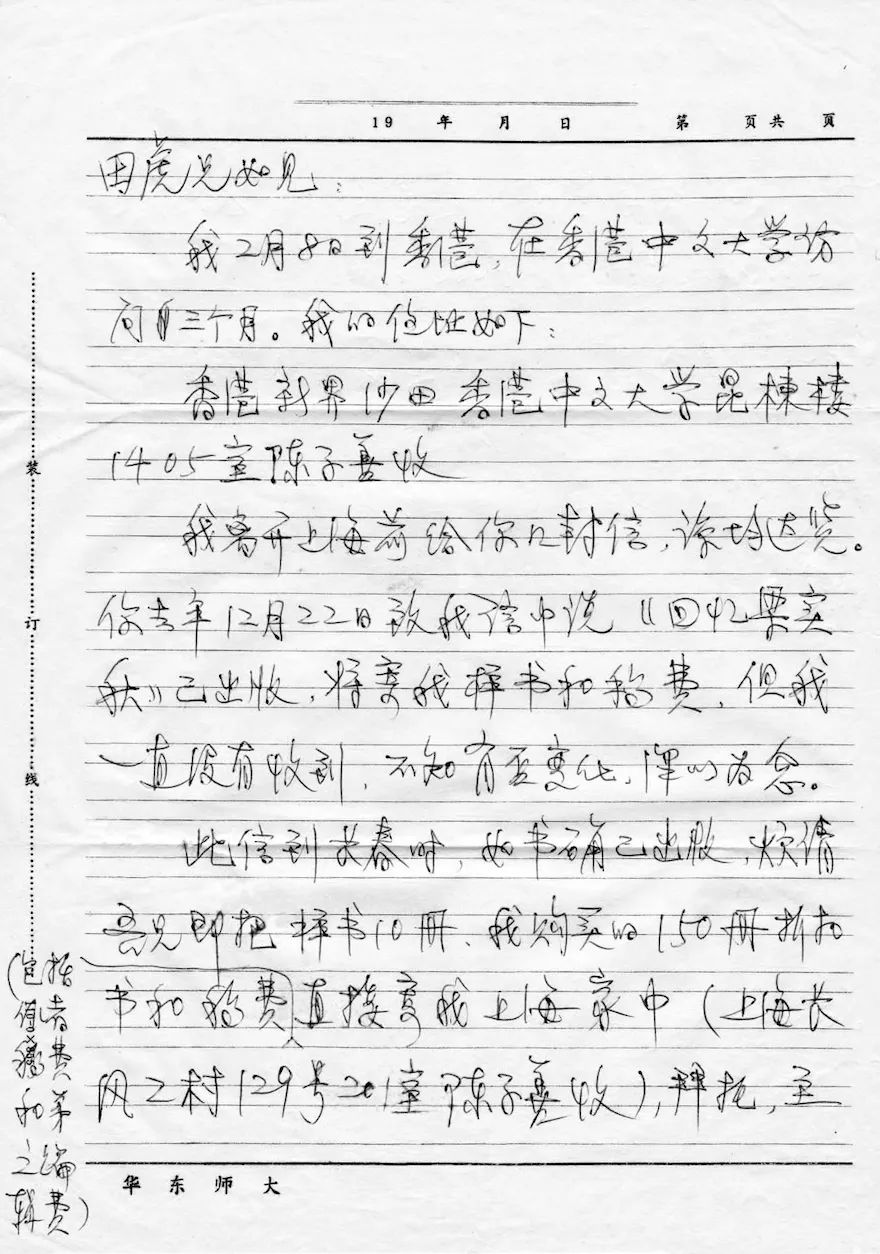 19 年 月 日 第 页共 页
田虎兄如见：
我2月8日到香港，在香港中文大学访
问三个月。我的住址如下：
香港新界沙田香港中文大学昆栋楼
1405室陈子善收
我离开上海前给你几封信，谅均达览。
你去年12月22日致我信中说《回忆梁实
秋》已出版，将寄我样书和稿费，但我
一直没有收到，不知有否变化，殊以为念。
此信到长春时，如书确已出版，烦请
吾兄即把样书10册、我购买的150册折扣
书和稿费直接寄我上海家中（上海长
风二村129号201室陈子善收），拜托，至
（包括
作者
稿费
和弟
之编
辑费）
装
订
线
华东师大